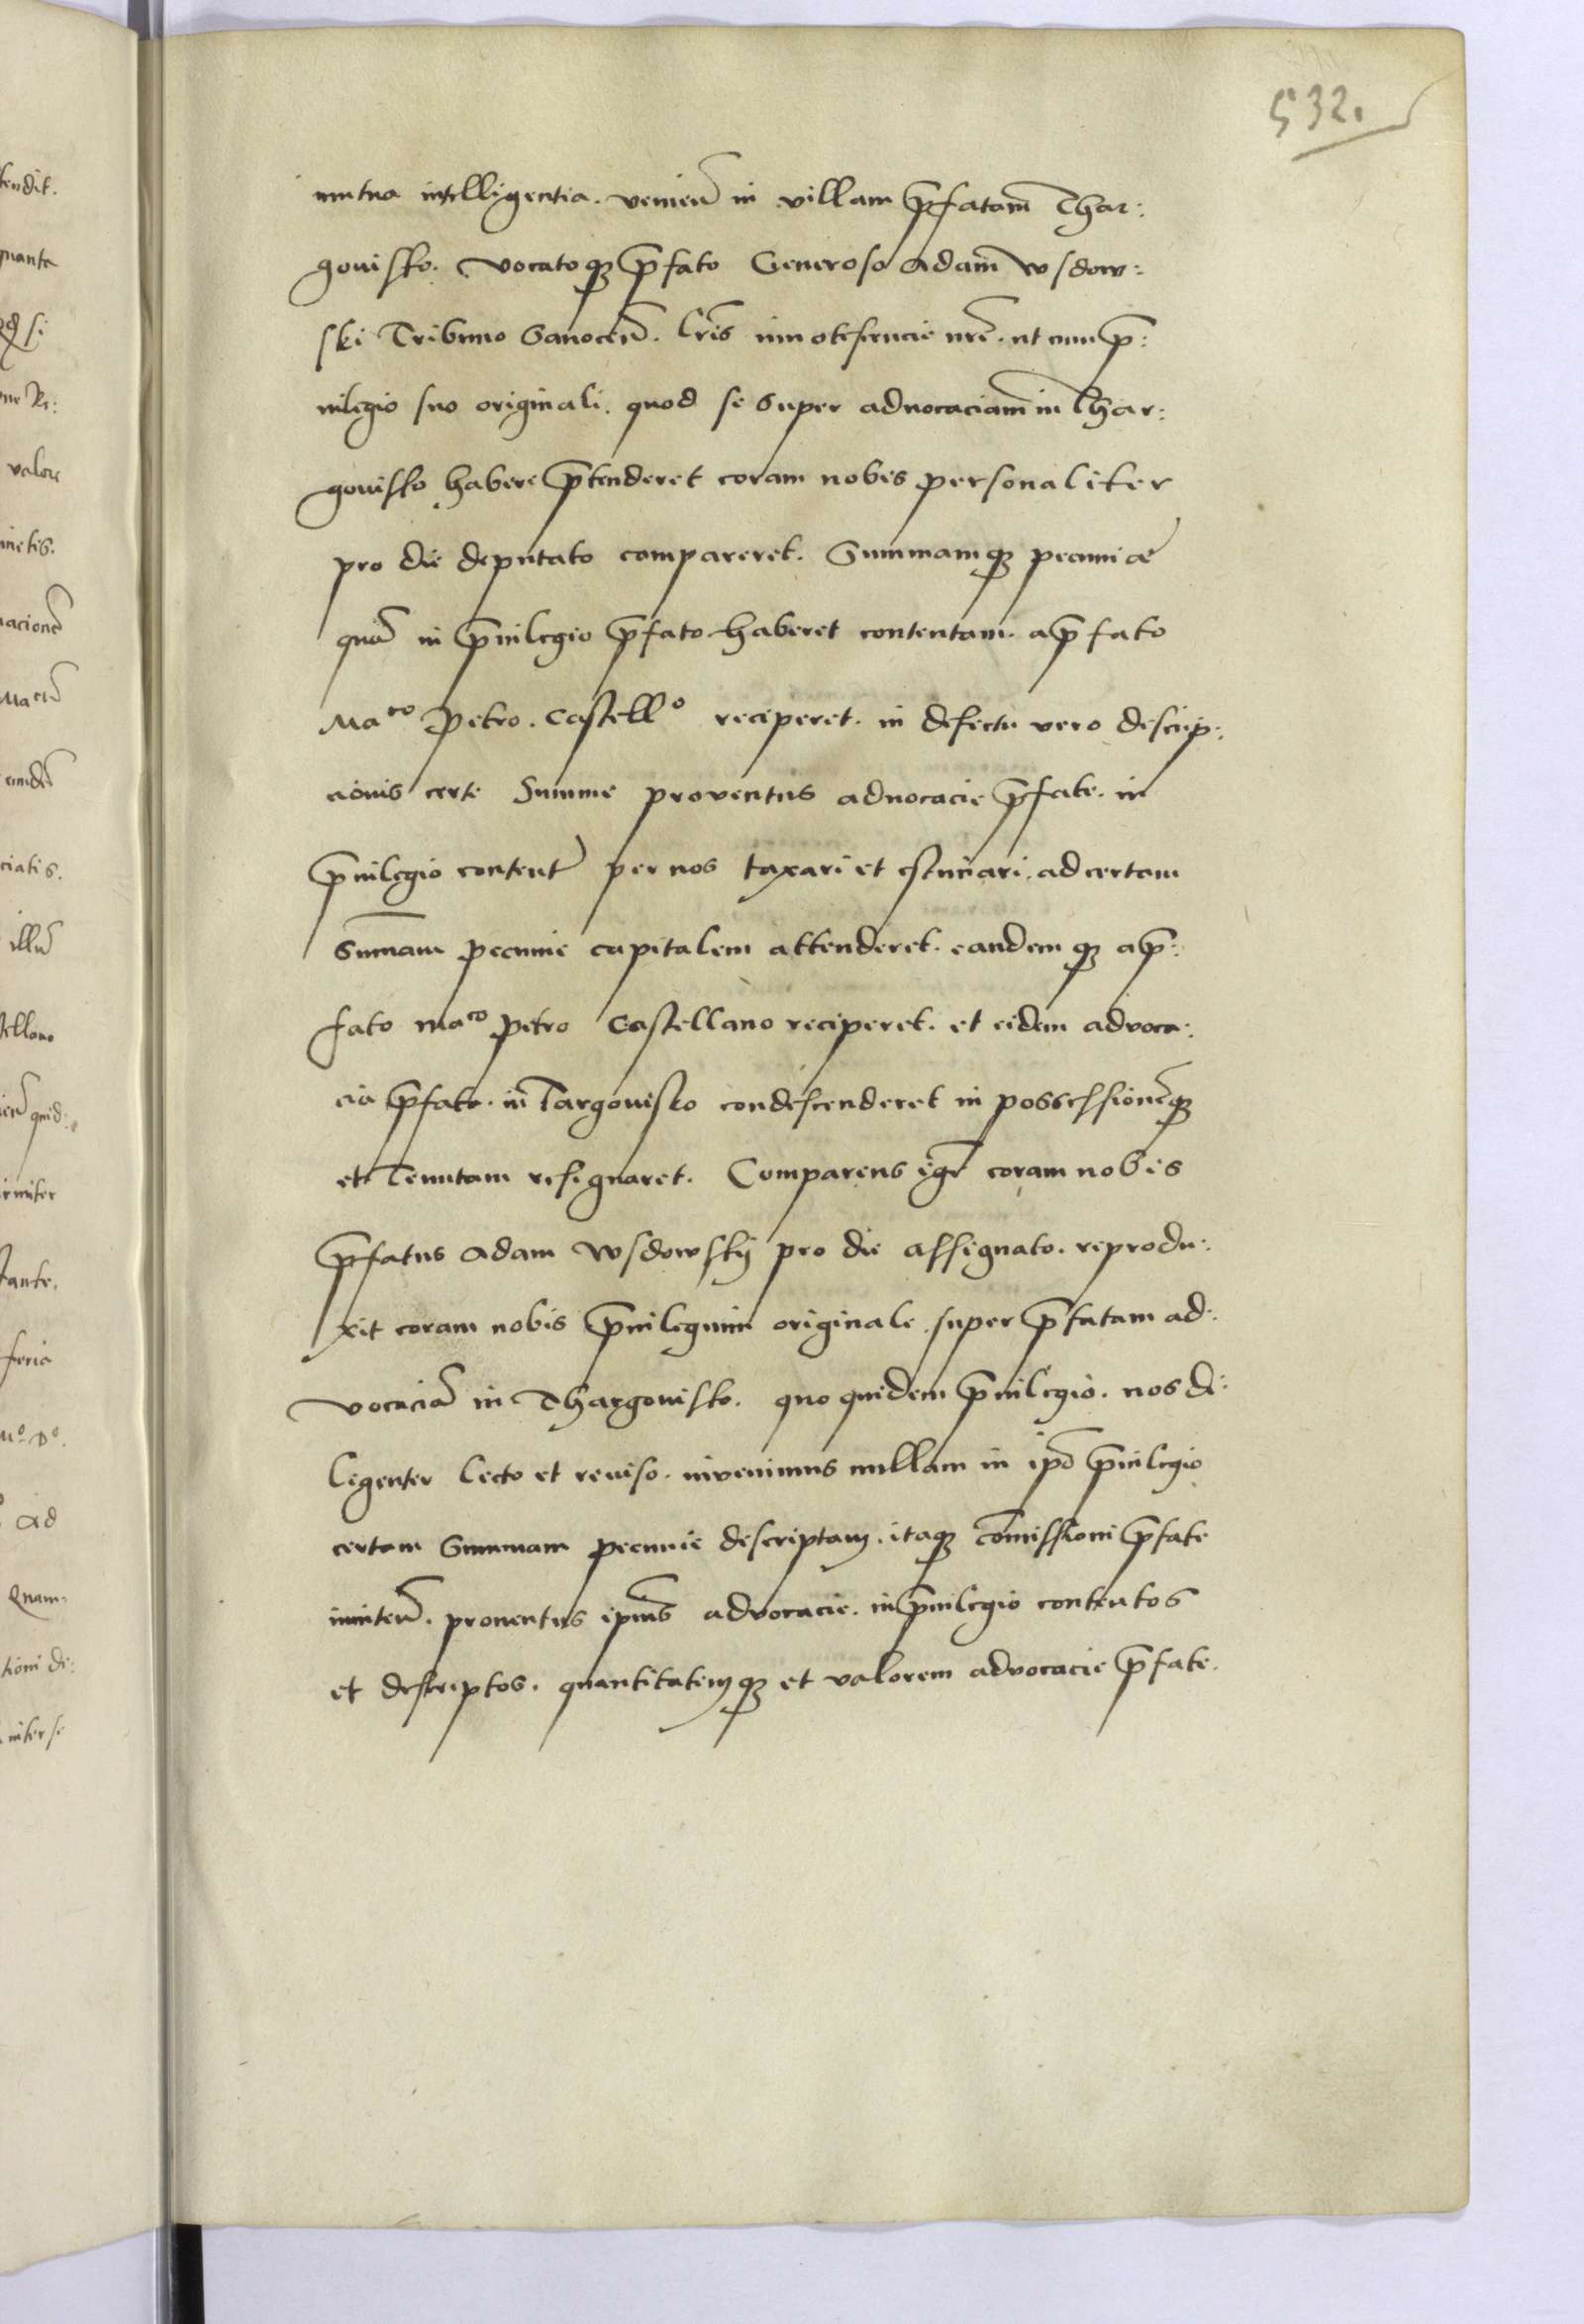 532.
mutua intelligentia. venien̄ in villam p̄fatam Thar:
gouisko. vocatoq₃ p̄fato Generoso Adam wsdow:
ski Tribuno Sanocen̄. Lr̄is innotescencie nr̄e. ut cum p̄:
uilegio suo originali. quod se super aduocaciam in Thar:
gouisko habere p̄tenderet coram nobis personaliter
pro die deputato compareret. Summamq₃ pecunie
quā in p̄uilegio p̄fato haberet contentam. a p̄fato
Maco Petro. Castello reciperet. in defectu vero descrip:
cionis certe Summe proventus aduocacie p̄fate. in
p̄uilegio content̄ per nos taxari et estimari. ad certam
Summam pecunie capitalem attenderet. eandemq₃ a p̄:
fato maco petro Castellano reciperet. et eidem advoca:
cia p̄fata. in Targouisko condescenderet in possessionēq₃
et Tenutam resignaret. Comparens igr̄ coram nobis
p̄fatus Adam wsdowskij pro die assignato. reprodu:
xit coram nobis p̄uilegium originale super p̄fatam ad:
vocaciā in Thargouisko. quo quidem p̄uilegio. nos di:
ligenter lecto et reuiso. invenimus nullam in ip̄o p̄uilegio
certam Summam pecunie descriptam. itaq₃ com̄issioni p̄fate
inniten̄. prouentus ipīus advocacie. in p̄uilegio contentos
et descriptos. quantitatemq₃ et valorem advocacie p̄fate.